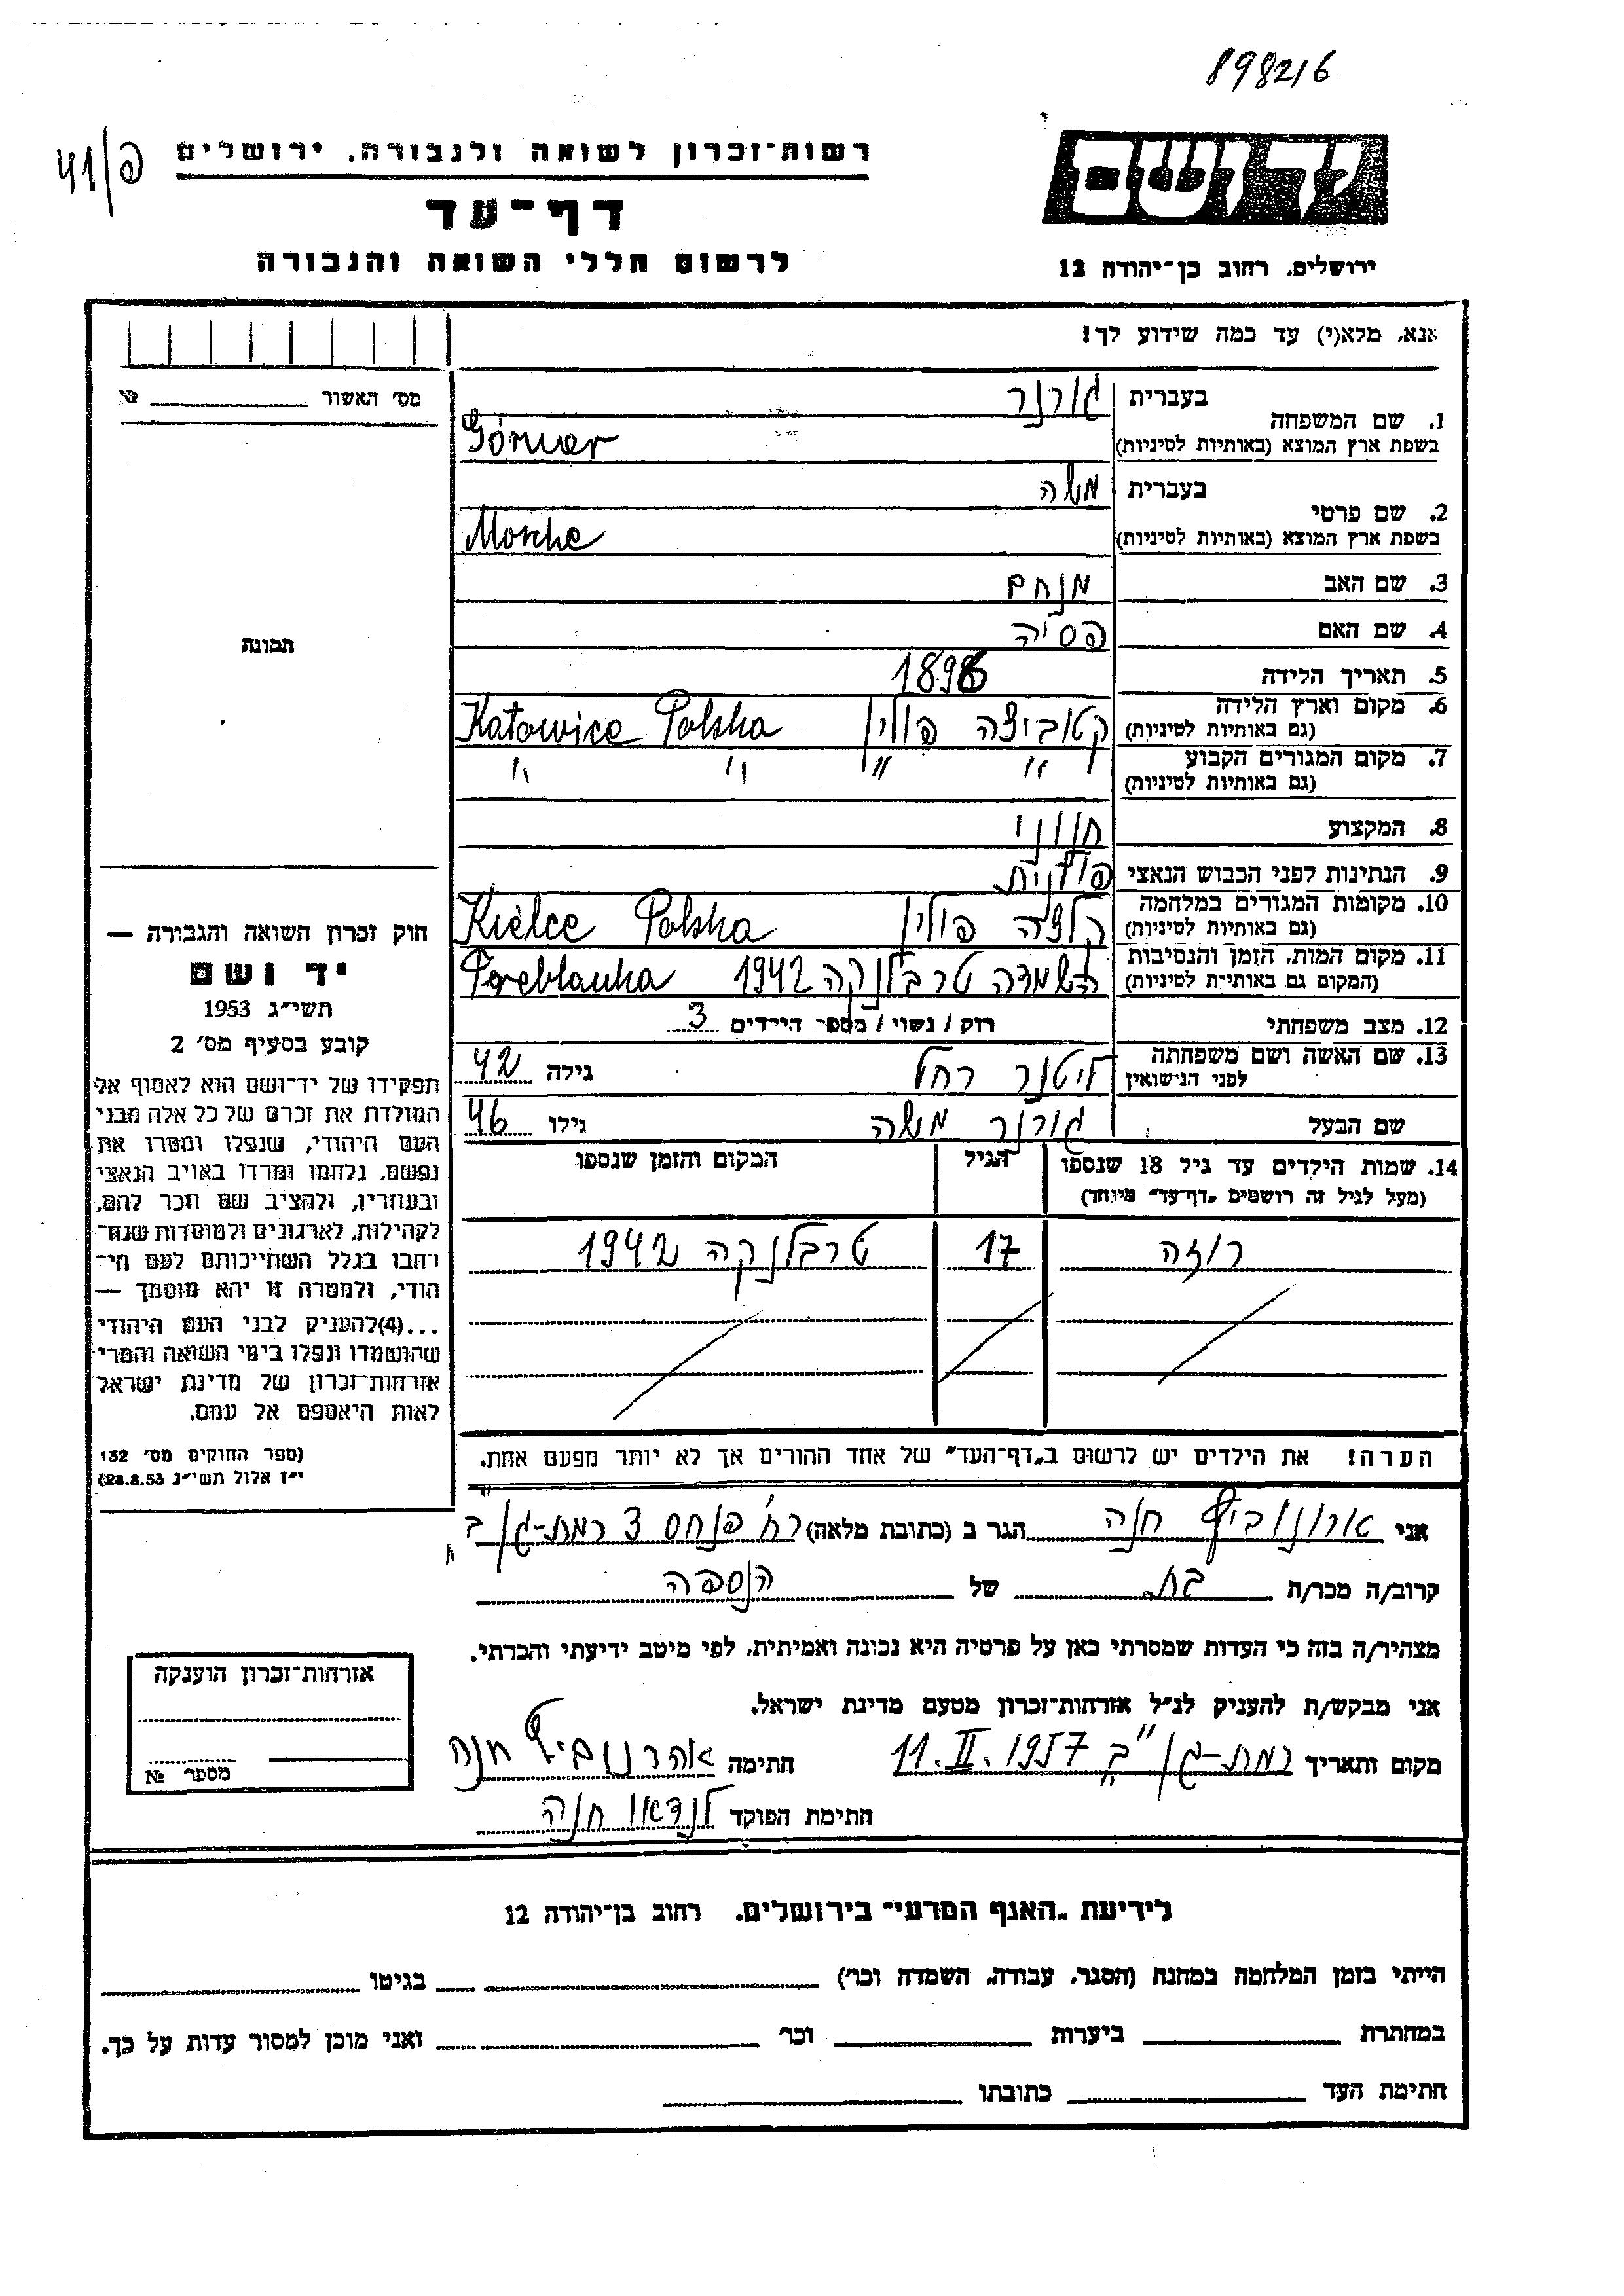 898216
יד ושם
ירושלים, רחוב בן־יהודה 12
רשות־זכרון לשואה ולגבורה, ירושלים
פ/41
דף־עד
לרשום חללי השואה והגבורה
אנא, מלא(י) עד כמה שידוע לך!
1. שם המשפחה בעברית גורנר
בשפת ארץ המוצא (באותיות לטיניות) Górner
2. שם פרטי בעברית משה
בשפת ארץ המוצא (באותיות לטיניות) Morche
3. שם האב מנחם
4. שם האם פסיה
5. תאריך הלידה 1896
6. מקום וארץ הלידה קטוביצה פולין Katowice Polska
(גם באותיות לטיניות)
7. מקום המגורים הקבוע " " " "
(גם באותיות לטיניות)
8. המקצוע חנוני
9. הנתינות לפני הכבוש הנאצי פולנית
10. מקומות המגורים במלחמה קלצה פולין Kielce Polska
(גם באותיות לטיניות)
11. מקום המות, הזמן והנסיבות השמדה טרבלנקה 1942 Treblanka
(המקום גם באותיות לטיניות)
12. מצב משפחתי רוק / נשוי / מספר הילדים 3
13. שם האשה ושם משפחתה ליטנר רחל גילה 42
לפני הנישואין
שם הבעל גורנר משה גילו 46
14. שמות הילדים עד גיל 18 שנספו הגיל המקום והזמן שנספו
(מעל לגיל זה רושמים „דף־עד" מיוחד)
רוזה 17 טרבלנקה 1942
הערה! את הילדים יש לרשום ב„דף־העד" של אחד ההורים אך לא יותר מפעם אחת.
אני ארונוביץ חנה הגר ב (כתובת מלאה) רח' פנחס 3 רמת-גן ב'
קרוב/ה מכר/ה בת של הנספה
מצהיר/ה בזה כי העדות שמסרתי כאן על פרטיה היא נכונה ואמיתית, לפי מיטב ידיעתי והכרתי.
אני מבקש/ת להעניק לנ"ל אזרחות־זכרון מטעם מדינת ישראל.
מקום ותאריך רמת-גן "ב" 11.II.1957 חתימה אהרנוביץ חנה
חתימת הפוקד לנדאו חנה
מס' האשור №
תמונה
חוק זכרון השואה והגבורה —
יד ושם
תשי"ג 1953
קובע בסעיף מס' 2
תפקידו של יד־ושם הוא לאסוף אל
המולדת את זכרם של כל אלה מבני
העם היהודי, שנפלו ומסרו את
נפשם, נלחמו ומרדו באויב הנאצי
ובעוזריו, ולהציב שם וזכר להם,
לקהילות, לארגונים ולמוסדות שנח־
רבו בגלל השתייכותם לעם הי־
הודי, ולמטרה זו יהא מוסמך —
...(4) להעניק לבני העם היהודי
שהושמדו ונפלו בימי השואה והמרי
אזרחות־זכרון של מדינת ישראל
לאות היאספם אל עמם.
(ספר החוקים מס' 132
י"ז אלול תשי"ג 28.8.53)
אזרחות־זכרון הוענקה
מספר №
לידיעת „האגף המדעי" בירושלים, רחוב בן־יהודה 12
הייתי בזמן המלחמה במחנה (הסגר, עבודה, השמדה וכו') בגיטו
במחתרת ביערות וכו' ואני מוכן למסור עדות על כך.
חתימת העד כתובתו